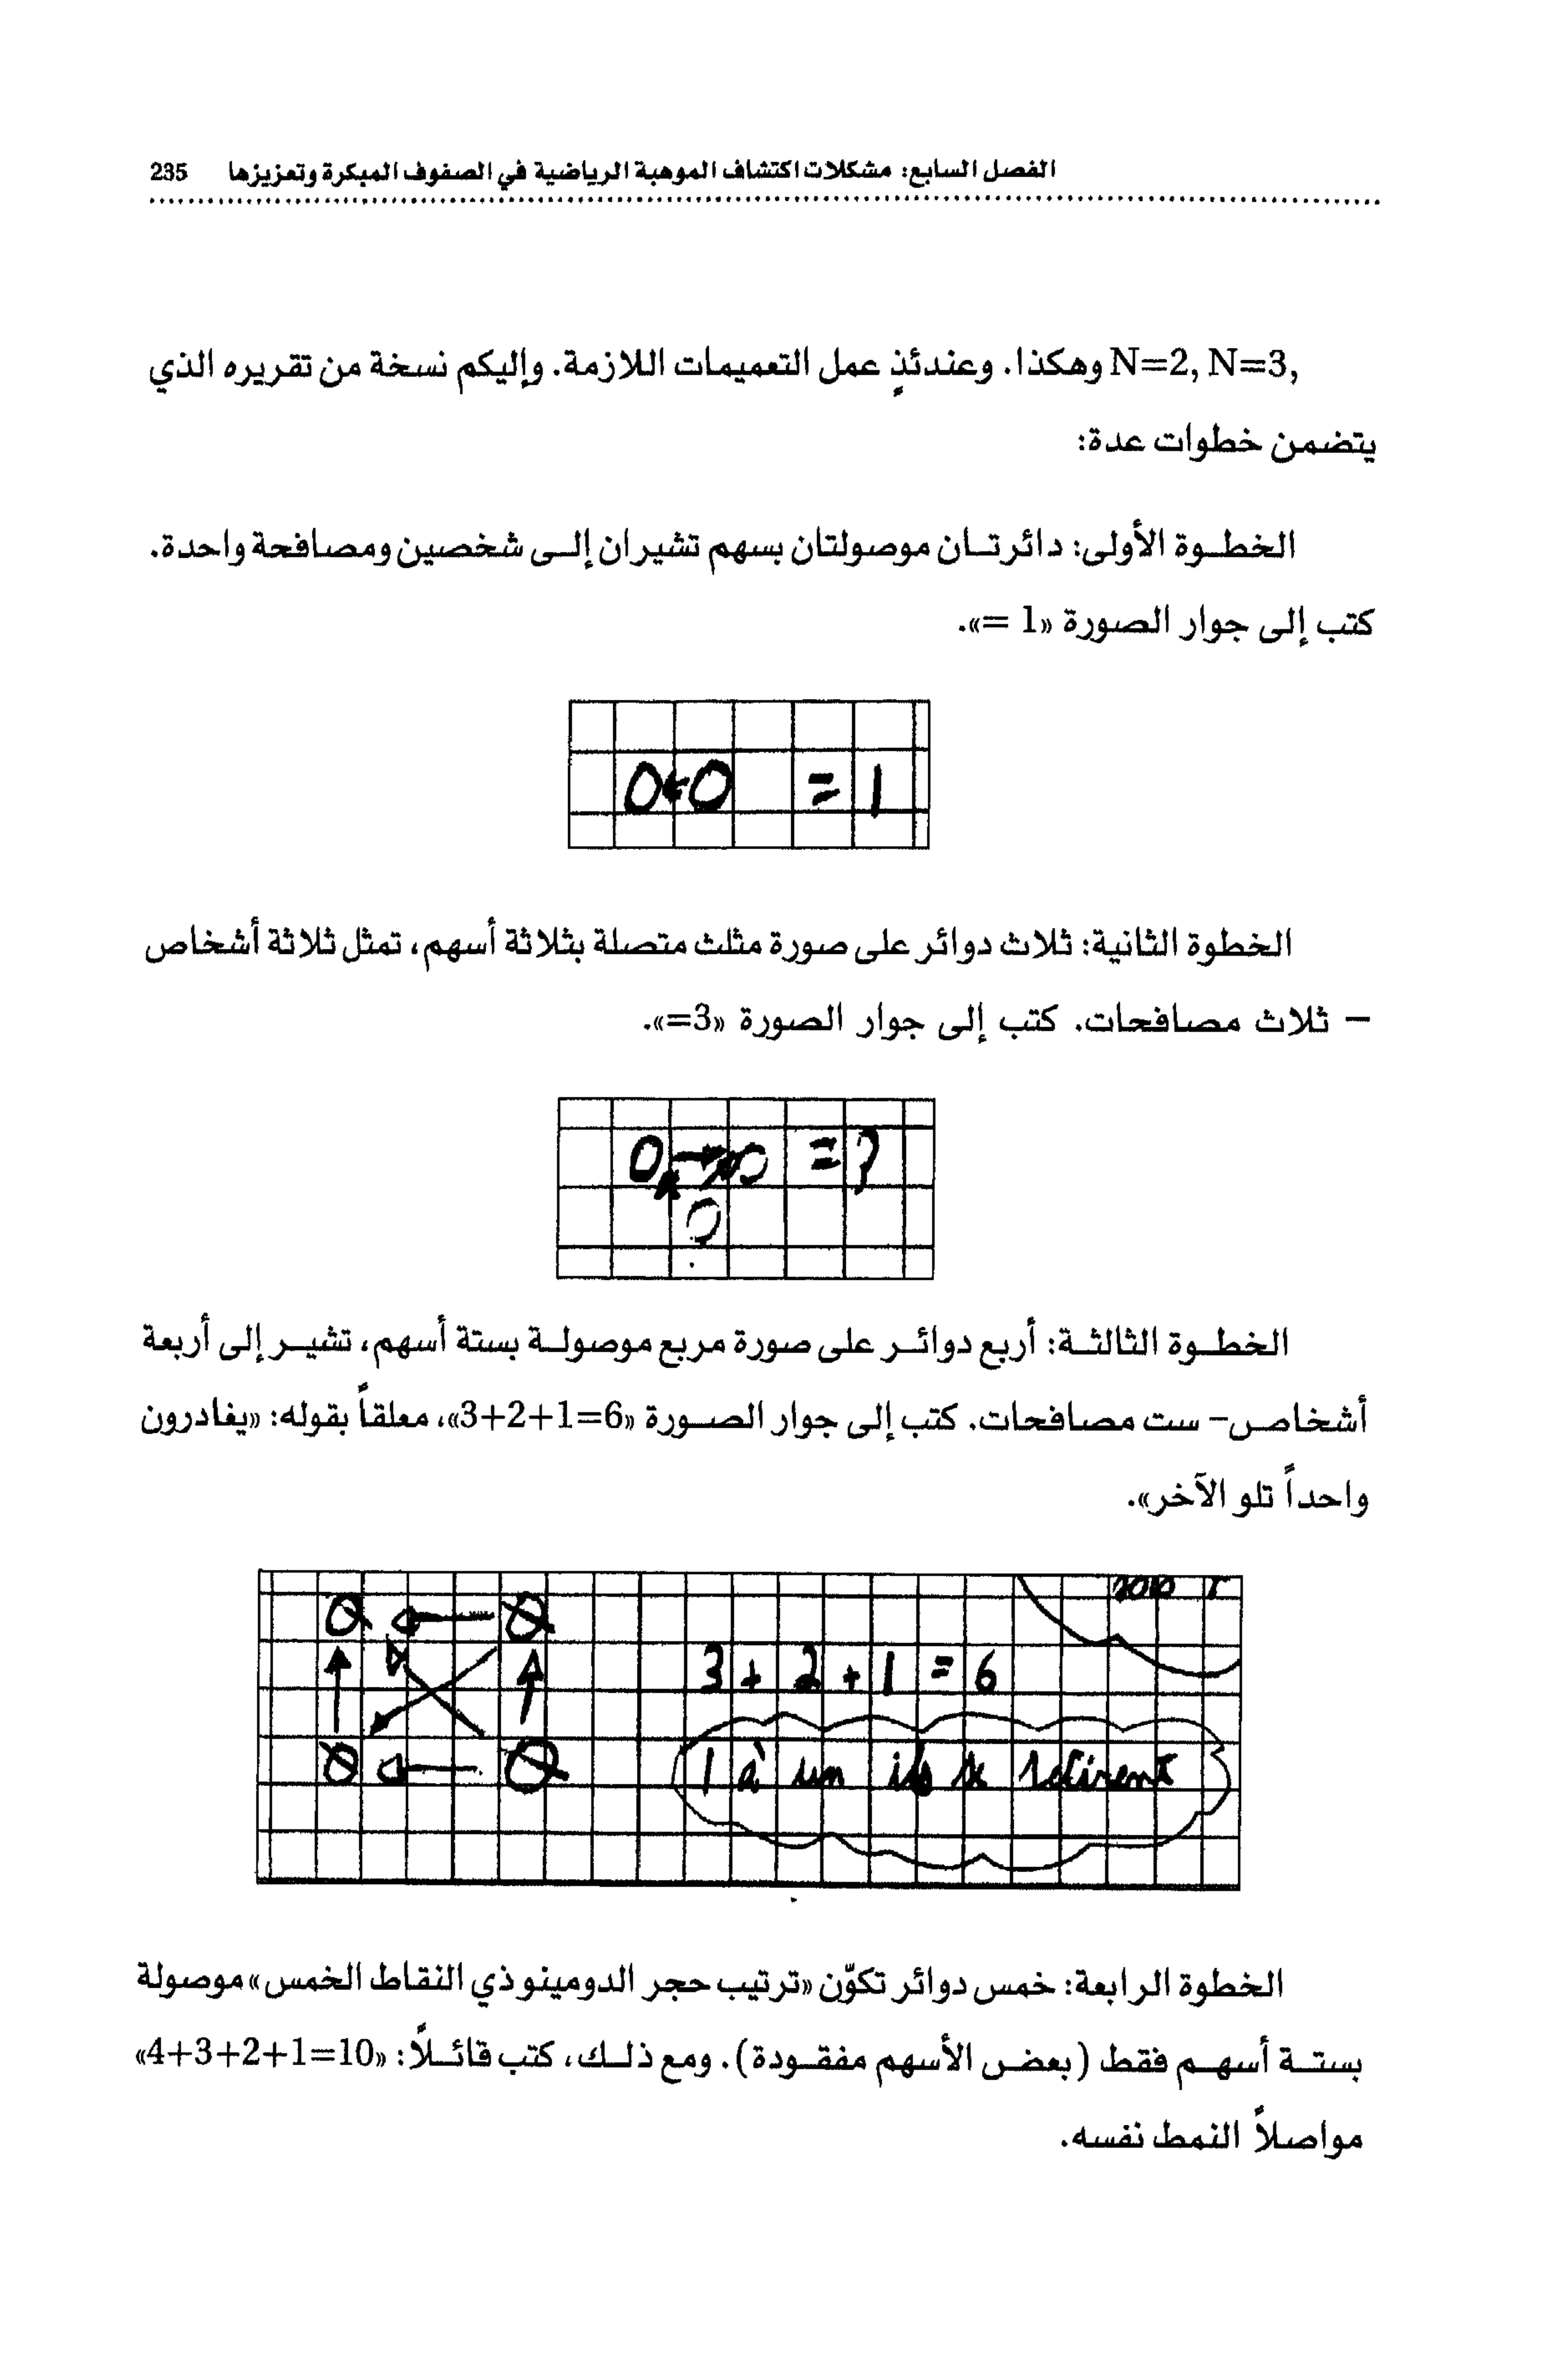 الفصل السابع: مشكلات اكتشاف الموهبة الرياضية في الصفوف المبكرة وتعزيزها 235
N=2, N=3, وهكذا. وعندئذٍ عمل التعميمات اللازمة. وإليكم نسخة من تقريره الذي
يتضمن خطوات عدة:
الخطوة الأولى: دائرتان موصولتان بسهم تشيران إلى شخصين ومصافحة واحدة.
كتب إلى جوار الصورة «1 =».
= 1
الخطوة الثانية: ثلاث دوائر على صورة مثلث متصلة بثلاثة أسهم، تمثل ثلاثة أشخاص
– ثلاث مصافحات. كتب إلى جوار الصورة «3=».
= 3
الخطوة الثالثة: أربع دوائر على صورة مربع موصولة بستة أسهم، تشير إلى أربعة
أشخاص- ست مصافحات. كتب إلى جوار الصورة «6=1+2+3»، معلقاً بقوله: «يغادرون
واحداً تلو الآخر».
3 + 2 + 1 = 6
1 à un ils se retirent
الخطوة الرابعة: خمس دوائر تكوّن «ترتيب حجر الدومينو ذي النقاط الخمس» موصولة
بستة أسهم فقط (بعض الأسهم مفقودة). ومع ذلك، كتب قائلاً: «10=1+2+3+4»
مواصلاً النمط نفسه.